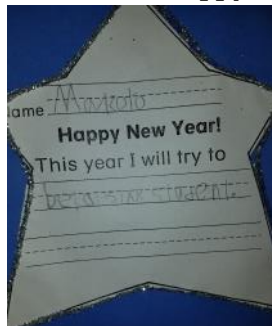 ame Makoto
Happy New Year!
This year I will try to
be a star student.